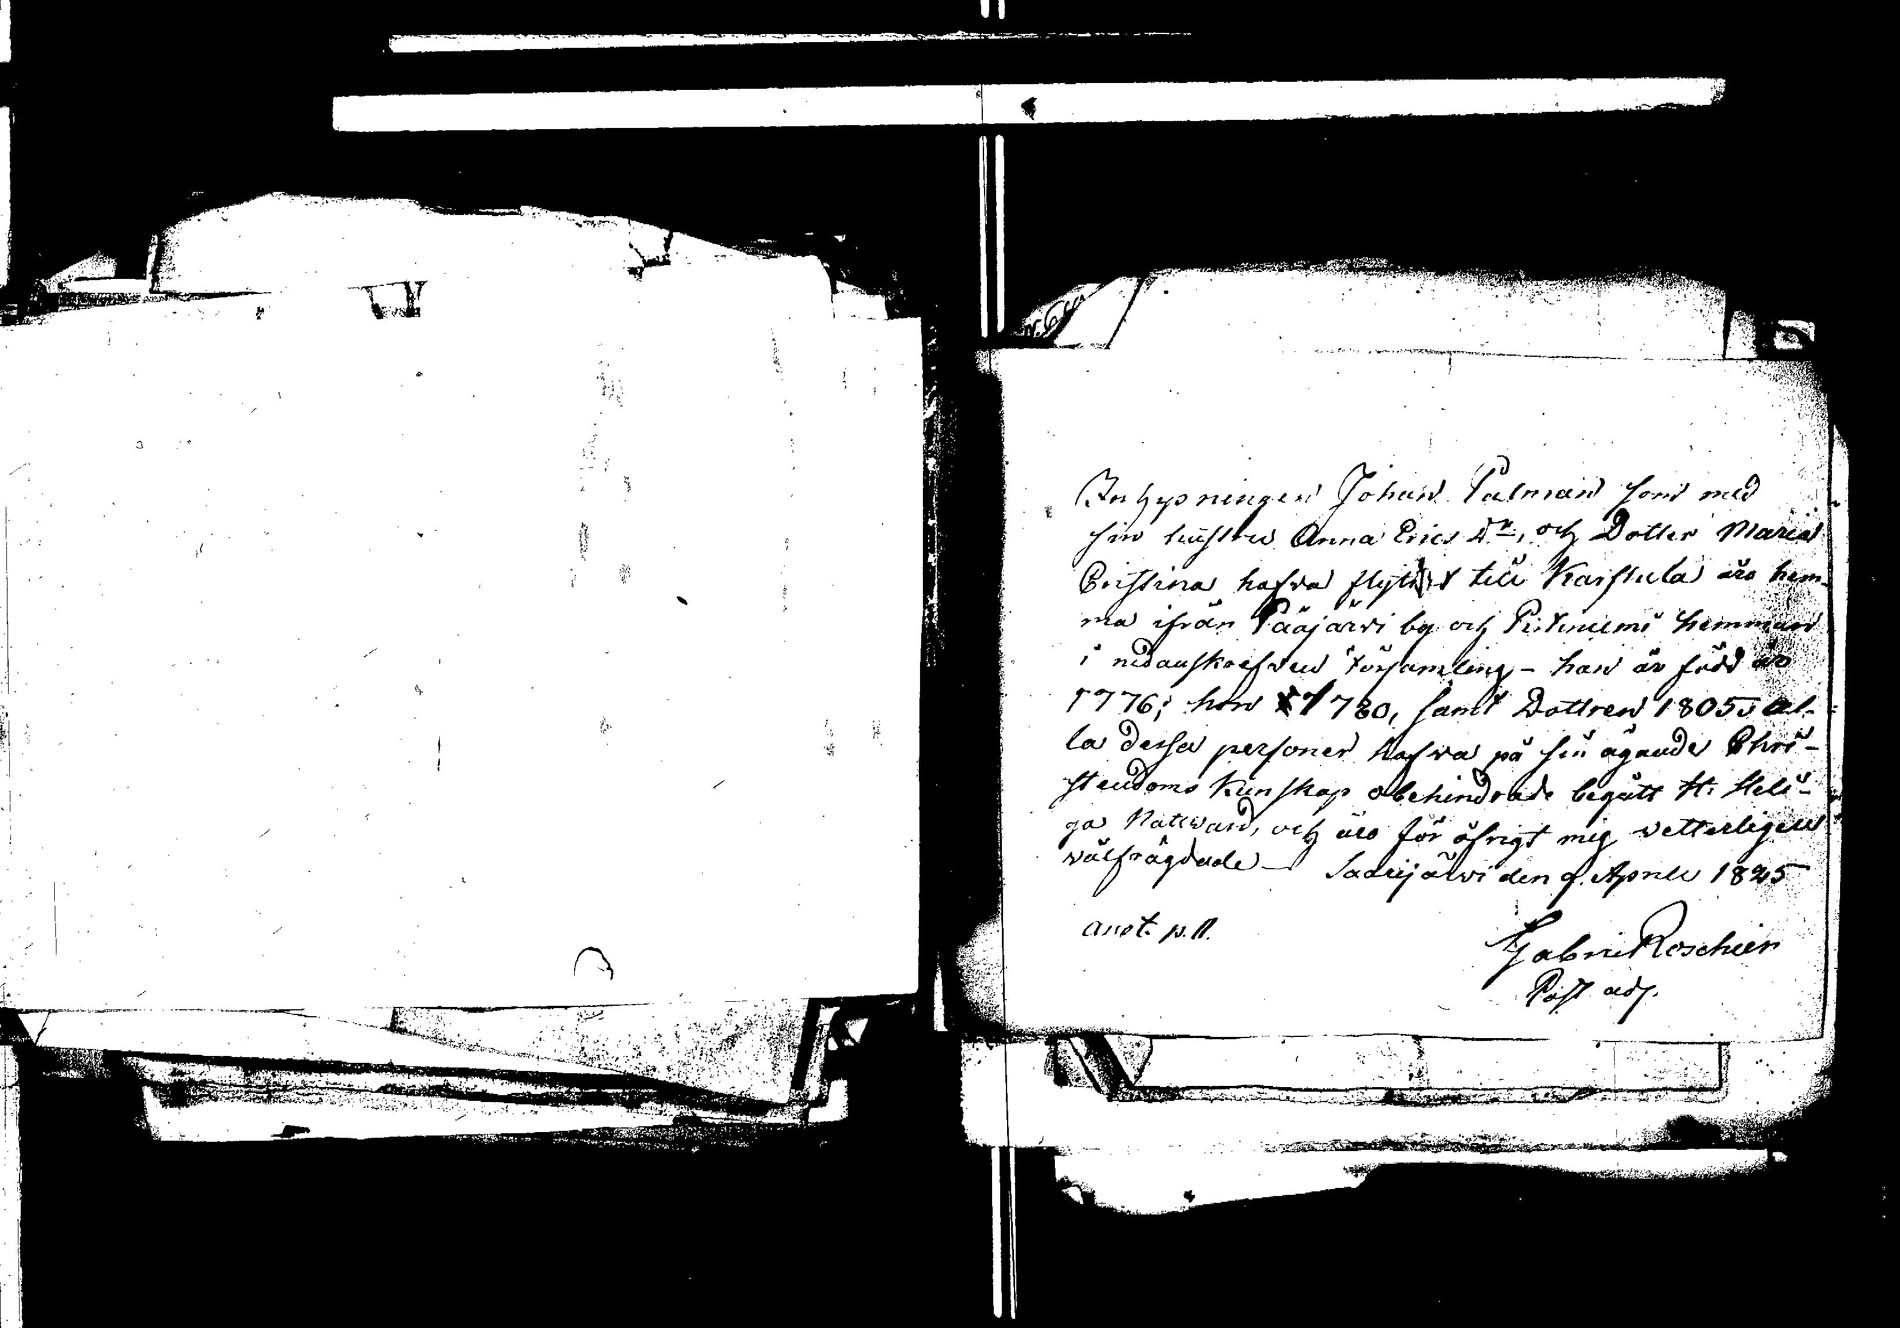 Inhysningen Johan Palman som med
sin hustru Anna Erics Dr, och Dotter Maria
Cristina hafva flyttat till Karstula äro hem-
ma ifrån Pääjärvi by och hemman
i nedanskrefven Församling - han är född år
1776; hon 1780, samt Dottren 1805 al-
la dessa personer hafva på sin ägande Chri-
stendoms Kunskap obehindrade begått H. Heli-
ga Nattvard, och äro för öfrigt mig vetterligen
välfrägdade - Saarijärvi den 9. Aprill 1825
anot. p. 11.
Gabriel Roschier
Past adj.